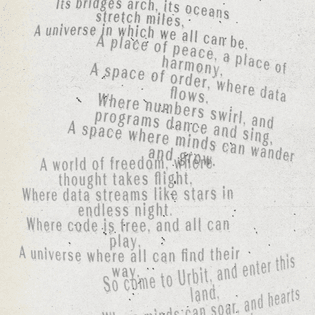 Its bridges arch, its oceans
stretch miles,
A universe in which we all can be.
A place of peace, a place of
harmony,
A space of order, where data
flows.
Where numbers swirl, and
programs dance and sing,
A space where minds can wander
and grow.
A world of freedom, where
thought takes flight,
Where data streams like stars in
endless night.
Where code is free, and all can
play,
A universe where all can find their
way.
So come to Urbit, and enter this
land,
Where minds can soar, and hearts